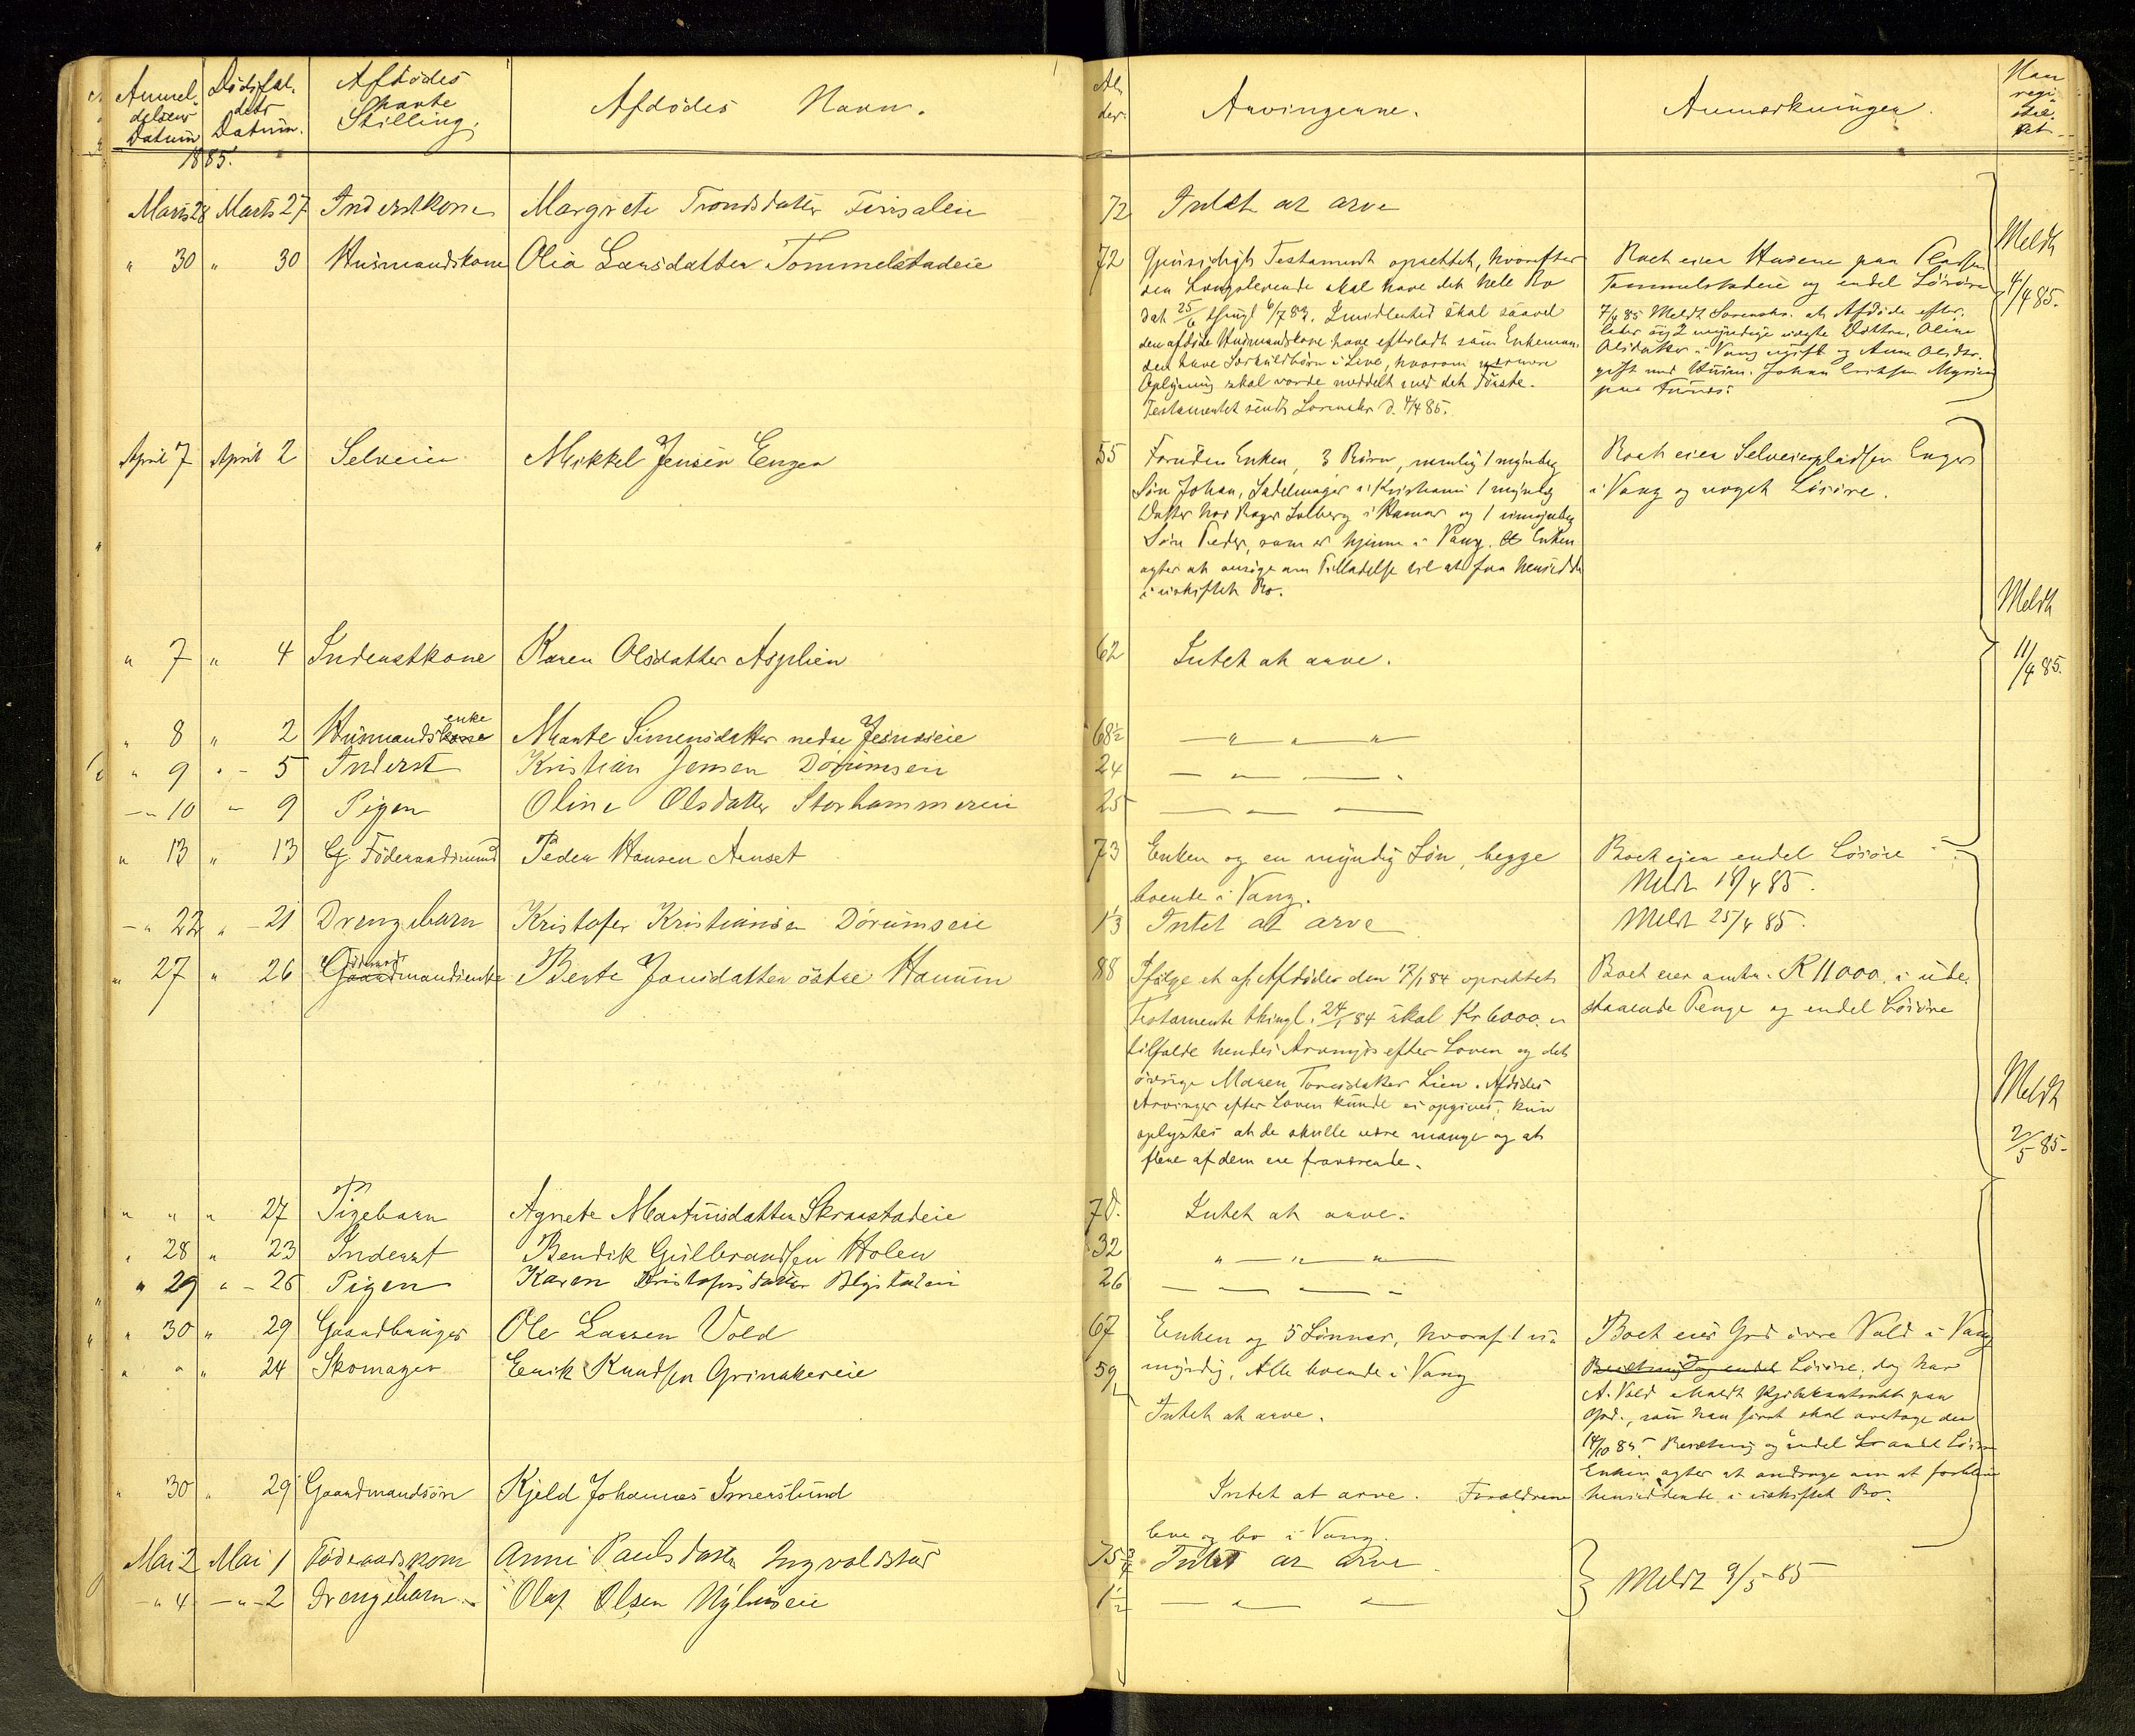 Anmel- Dödsfal- Afdödes Afdödes Navn. Al- Arvingerne. Anmærkninger. Nav
delsens dets havte der. regi-
Datum Datum. Stilling. strer-
1885. et
Marts 28 Marts 27 Inderstkone Margrete Trondsdatter 72 Intet at arve
" 30 " 30 Husmandskone Olia Larsdatter Tommelstadeie 72 Gjensidigt Testament oprettet, hvorefter Boet eier Husene paa Pladsen Meldt
den Længstlevende skal have det hele Bo Tommelstadeie og endel Lösöre 4/4 85.
dat 25/6 thingl 6/7 83. Imidlertid skal saavel 7/4 85 Meldt Sorenskr. at Afdöde efter-
den afdöde Husmandskone have efterladt som Enkeman- lader sig 2 myndige Döttre, Oline
den have Særkuldbörn i Live, hvorom nærmere Olsdatter i Vang ugift og Anne Olsdtr.
Oplysning skal vorde meddelt med det förste. gift med Husm. Johan Eriksen
Testamentet sendt Sorenskr d. 4/4 85. paa Furnes.
April 7 April 2 Selveier Mikkel Jensen Engen 55 Foruden Enken, 3 Börn, nemlig 1 myndig Boet eier Selveierpladsen Engen
Sön Johan, Sadelmager i Kristiania 1 myndig i Vang og noget Lösöre.
Datter hos Bager Solberg i Hamar og 1 umyndig
Sön Peder, som er hjemme i Vang. Enken
agter at ansöge om Tilladelse til at faa hensidde
i uskiftet Bo. Meldt
" 7 " 4 Inderstkone Karen Olsdatter Asplien 62 Intet at arve. 11/4 85.
" 8 " 2 Husmandsenke Marte Simensdatter nedre 68½ — " — " — " —
" 9 " - 5 Inderst Kristian Jensen Dörumseie 24 — " — .
— " 10 " 9 Pigen Oline Olsdatter Storhammereie 25 — — —
" 13 " 13 G. Föderaadsmand Peder Hansen Arnset 73 Enken og en myndig Sön, begge Boet eier endel Lösöre
boende i Vang. Meldt 18/4 85.
— " 22 " - 21 Drengebarn Kristofer Kristiansen Dörumseie 1/3 Intet at arve Meldt 25/4 85.
" 27 " 26 Föderaads Gaardmandsenke Berte Jonsdatter östre Hanum 88 Ifölge et af Afdöde den 17/1 84 oprettet Boet eier omtr. K 11000 i ude-
Testamente thingl. 24/1 84 skal Kr 6000. staaende Penge og endel Lösöre
tilfalde hendes Arvinger efter Loven og det
övrige Maren Toresdatter Lien. Afdödes Meldt
Arvinger efter Loven kunde ei opgives, kun
oplystes at de skulle være mange og at 2/5 85.
flere af dem ere fraværende.
" " " 27 Pigebarn Agnete Martinsdatter Skraastadeie 7 d. Intet at arve.
" 28 " 23 Inderst Bendik Gulbrandsen Holen 32 " — " — " —
" 29 " - 26 Pigen Karen Kristofersdatter 26 — — — —
" 30 " 29 Gaardbruger Ole Larsen Vold 67 Enken og 5 Sönner, hvoraf 1 u- Boet eier Grd övre Vold i Vang
" " " 24 Skomager Erik Knudsen Grinakereie 59½ myndig, Alle boende i Vang Besætning og endel Lösöre, dog har
Intet at arve. A. Vold erholdt Kjöbekontrakt paa
Grd., som han först skal overtage den
14/10 85. Besætning og endel Lösöre
Enken agter at andrage om at forblive
" 30 " 29 Gaardmandssön Kjeld Johannes Imerslund Intet at arve. Forældrene hensiddende i uskiftet Bo.
leve og bo i Vang.
Mai 2 Mai 1 Föderaadskone Anne Paulsdatter Ingvoldstad 75¾ Intet at arve } Meldt 9/5 85
— " 4 — " - 2 Drengebarn Olaf Olsen Nyhuseie 1½ — " — " —